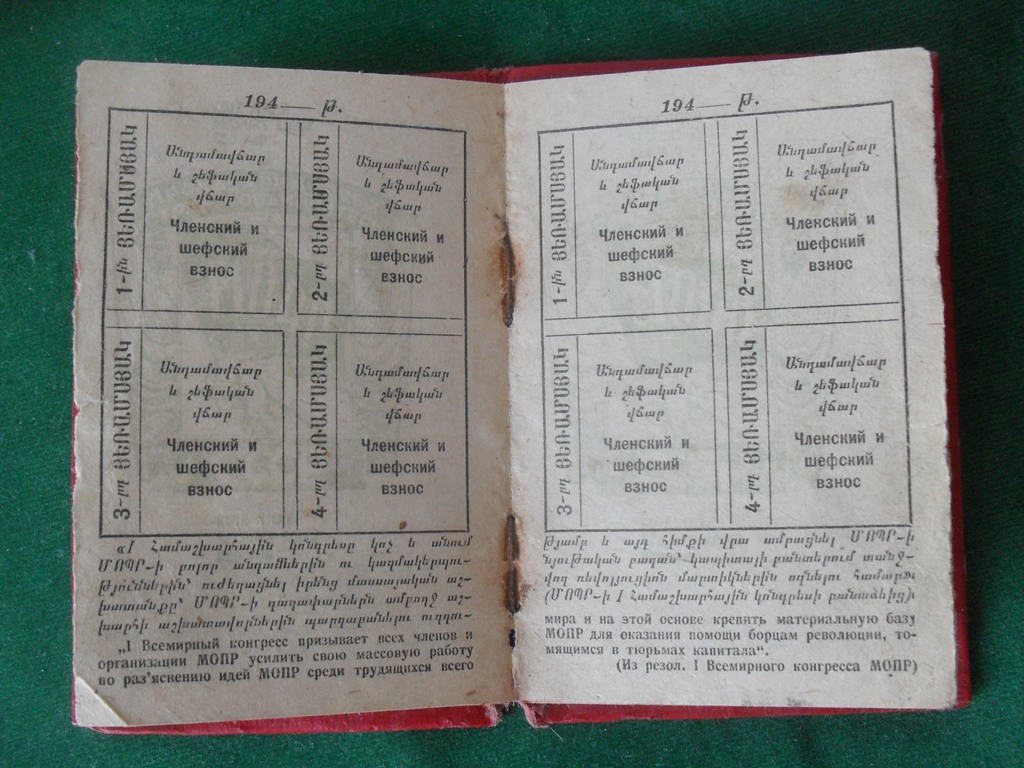 194— թ.
1-ին ՅԵՌԱՄՍՅԱԿ
Անդամավճար
և շեֆական
վճար
Членский и
шефский
взнос
2-րդ ՅԵՌԱՄՍՅԱԿ
Անդամավճար
և շեֆական
վճար
Членский и
шефский
взнос
3-րդ ՅԵՌԱՄՍՅԱԿ
Անդամավճար
և շեֆական
վճար
Членский и
шефский
взнос
4-րդ ՅԵՌԱՄՍՅԱԿ
Անդամավճար
և շեֆական
վճար
Членский и
шефский
взнос
«I Համաշխարհային կոնգրեսը կոչ և անում
ՄՈՊՐ-ի բոլոր անդամներին ու կազմակերպու-
թյուններին՝ ուժեղացնել իրենց մասսայական աշ-
խատանքը՝ ՄՈՊՐ-ի գաղափարներն ամբողջ աշ-
խարհի աշխատավորներին պարզաբանելու ուղղու-
„I Всемирный конгресс призывает всех членов и
организации МОПР усилить свою массовую работу
по раз'яснению идей МОПР среди трудящихся всего
194— թ.
1-ին ՅԵՌԱՄՍՅԱԿ
Անդամավճար
և շեֆական
վճար
Членский и
шефский
взнос
2-րդ ՅԵՌԱՄՍՅԱԿ
Անդամավճար
և շեֆական
վճար
Членский и
шефский
взнос
3-րդ ՅԵՌԱՄՍՅԱԿ
Անդամավճար
և շեֆական
վճար
Членский и
шефский
взнос
4-րդ ՅԵՌԱՄՍՅԱԿ
Անդամավճար
և շեֆական
վճար
Членский и
шефский
взнос
թյամբ և այդ հիմքի վրա ամրացնել ՄՈՊՐ-ի
նյութական բազան՝ կապիտալի բանտերում տանջ-
վող ռեվոլյուցիոն մարտիկներին օգնելու համար»
(ՄՈՊՐ-ի I Համաշխարհային կոնգրեսի բանաձևից)։
мира и на этой основе крепить материальную базу
МОПР для оказания помощи борцам революции, то-
мящимся в тюрьмах капитала“.
(Из резол. I Всемирного конгресса МОПР)